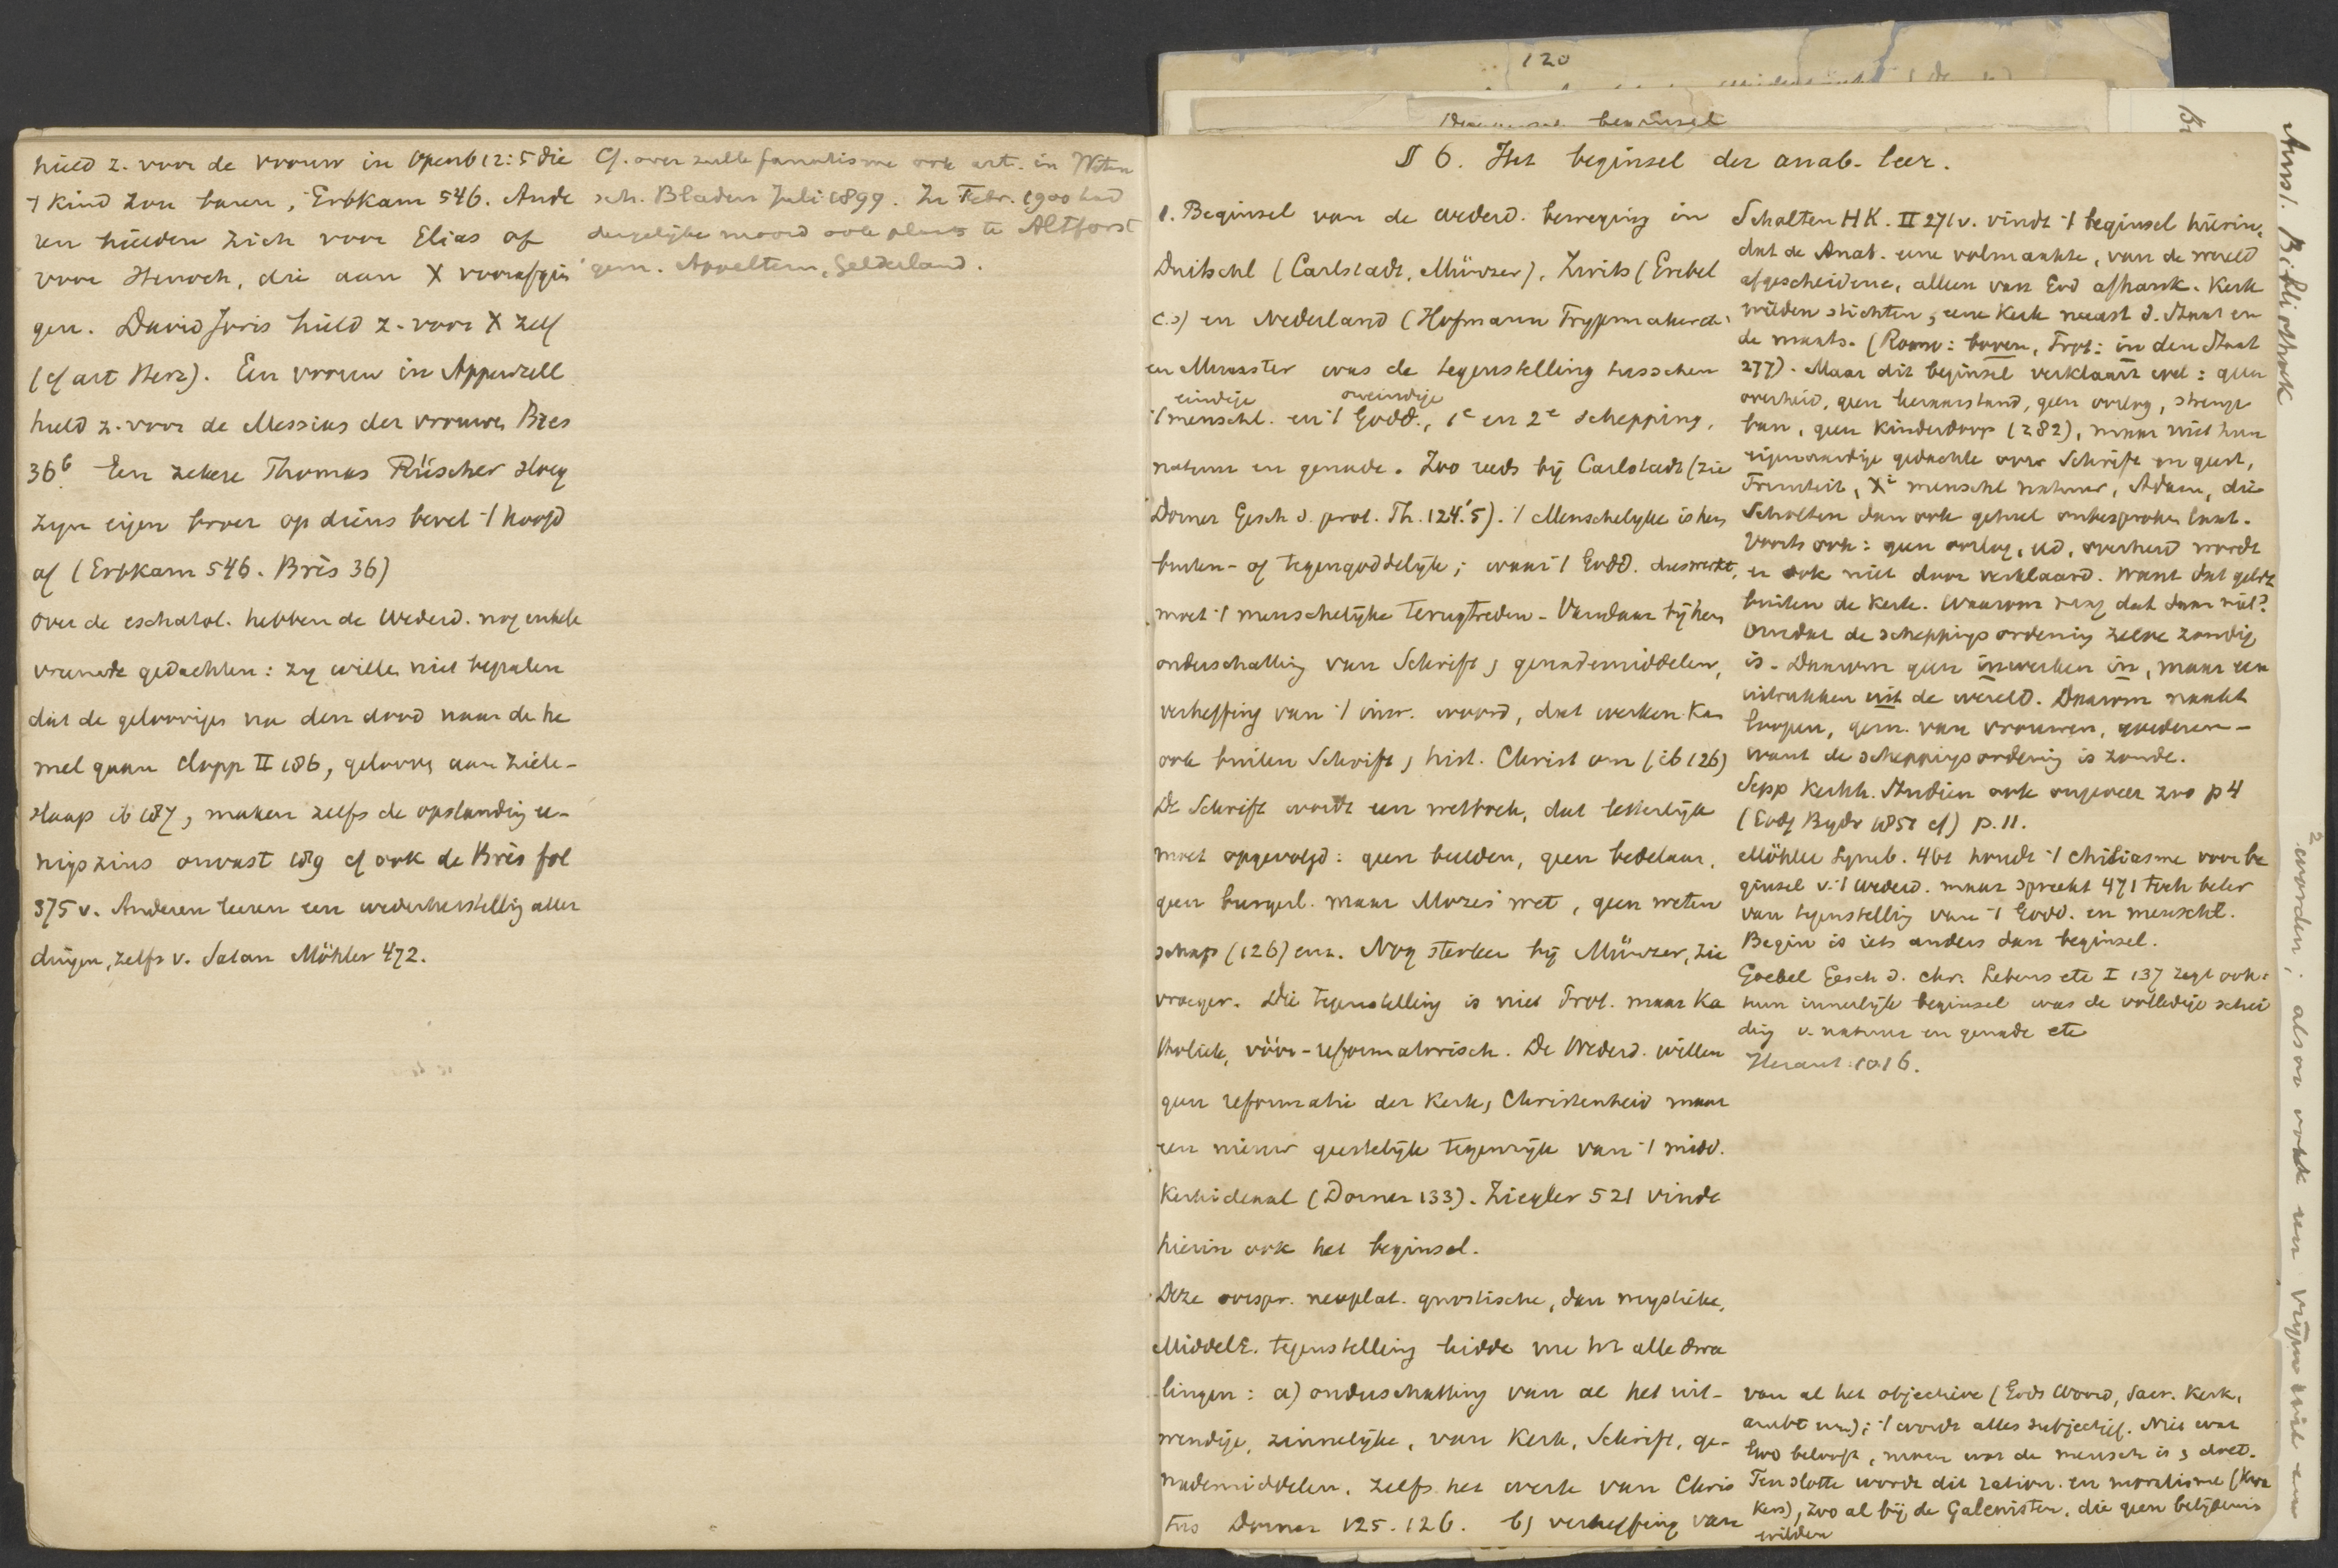 hield z. voor de vrouw in Openb 12:5 die
't kind zou baren, Erbkam 546. Ande
ren hielden zich voor Elias of
voor Henoch, die aan X voorafgin
gen. David Joris hield z. voor X zelf
(cf art Herz). Een vrouw in Appenzell
hield z. voor de Messias der vrouwen Brès
36b Een zekere Thomas Rüscher sloeg
zijn eigen broer op diens bevel 't hoofd
af (Erbkam 546. Brès 36)
over de eschatol. hebben de Wederd. nog enkele
vreemde gedachten: zij willen niet bepalen
dat de geloovigen na den dood naar de he
mel gaan Clopp II 186, gelooven aan ziele-
slaap ib 187, maken zelfs de opstanding ee-
nigszins onvast 189 cf ook de Brès fol
375 v. Anderen leeren een wederherstelling aller
dingen, zelfs v. Satan Möhler 472.
Cf. over zulk fanatisme ook art. in Weten
sch. Bladen Juli 1899. In Febr. 1900 had
dergelijke moord ook plaats te Altforst
gem. Appeltern, Gelderland.
120
beginsel
§ 6. Het beginsel der anab. leer.
1. Beginsel van de wederd. beweging in
Duitschl (Carlstadt, Münzer), Zwits (Grebel
c.s) en Nederland (Hofmann Trypmaker
en Munster was de tegenstelling tusschen
eindige oneindige
't menschl. en 't Godd., 1e en 2e schepping,
natuur en genade. Zoo reeds bij Carlstadt (zie
Dorner Gesch d. prot. Th. 124.'5). 't Menschelijke is hen
buiten- of tegengoddelijk; waar 't Godd. dus werkt,
moet 't menschelijke terugtreden. Vandaar bij hen
onderschatting van Schrift, genademiddelen,
verheffing van 't inw. woord, dat werken kan
ook buiten Schrift, hist. Christ om (ib 126)
De Schrift wordt een wetboek, dat letterlijk
moet opgevolgd: geen beelden, geen bedelaar,
geen burgerl. maar Mozes' wet, geen weten
schap (126) enz. Nog sterker bij Münzer, zie
vroeger. Die tegenstelling is niet Prot. maar Ka
tholiek, vóór-reformatorisch. De Wederd. willen
geen reformatie der Kerk, Christenheid maar
een nieuw geestelijk tegenrijk van 't midd.
Kerkideaal (Dorner 133). Ziegler 521 vindt
hierin ook het beginsel.
Deze oorspr. neoplat. gnostische, dan mystieke,
MiddelE. tegenstelling leidde nu tot alle dwa
lingen: a) onderschatting van al het uit-
wendige, zinnelijke, van Kerk, Schrift, ge-
nademiddelen, zelfs het werk van Chris
tus Dorner 125. 126. b) verheffing van
Scholten HK. II 271v. vindt 't beginsel hierin,
dat de Anab. eene volmaakte, van de wereld
afgescheidene, alleen van God afhank. Kerk
wilden stichten, eene Kerk naast d. Staat en
de maats. (Roomsch: boven, Prot: in den Staat
277). Maar dit beginsel verklaart wel: geen
overheid, geen oorlog, strenge
ban, geen kinderdoop (282), maar niet hun
eigenaardige gedachte over Schrift en geest,
Triniteit, X' menschl natuur, Adam, die
Scholten dan ook geheel onbesproken laat.
Voorts ook: geen oorlog, eed, overheid wordt
er ook niet door verklaard. Want dat geldt
buiten de Kerk. Waarom mag dat daar niet?
Omdat de scheppingsordening zelve zondig
is. Daarom geen inwerken in, maar een
uittrekken uit de wereld. Daarom naakt
loopen, gem. van vrouwen, goederen -
want de scheppingsordening is zonde.
Sepp Kerkh. Studien ook ongeveer zoo p 4
(Godg Bijdr 1851 cf) p. 11.
Möhler Symb. 461 houdt 't chiliasme voor be
ginsel v. 't wederd. maar spreekt 471 toch beter
van tegenstelling van 't Godd. en menschl.
Begin is iets anders dan beginsel.
Goebel Gesch d. chr. Lebens etc I 137 zegt ook:
hun innerlijk beginsel was de volledige schei
ding v. natuur en genade etc
Heraut 1016.
van al het objectieve (Gods Woord, Sacr. Kerk,
ambt enz); 't wordt alles subjectief. Niet wat
God belooft, maar wat de mensch is, doet.
Ten slotte wordt dit ration. en moralisme (Kwa
kers), zoo al bij de Galenisten, die geen belijdenis
wilden
Amst. Bibliotheek
2 worden; alsook een